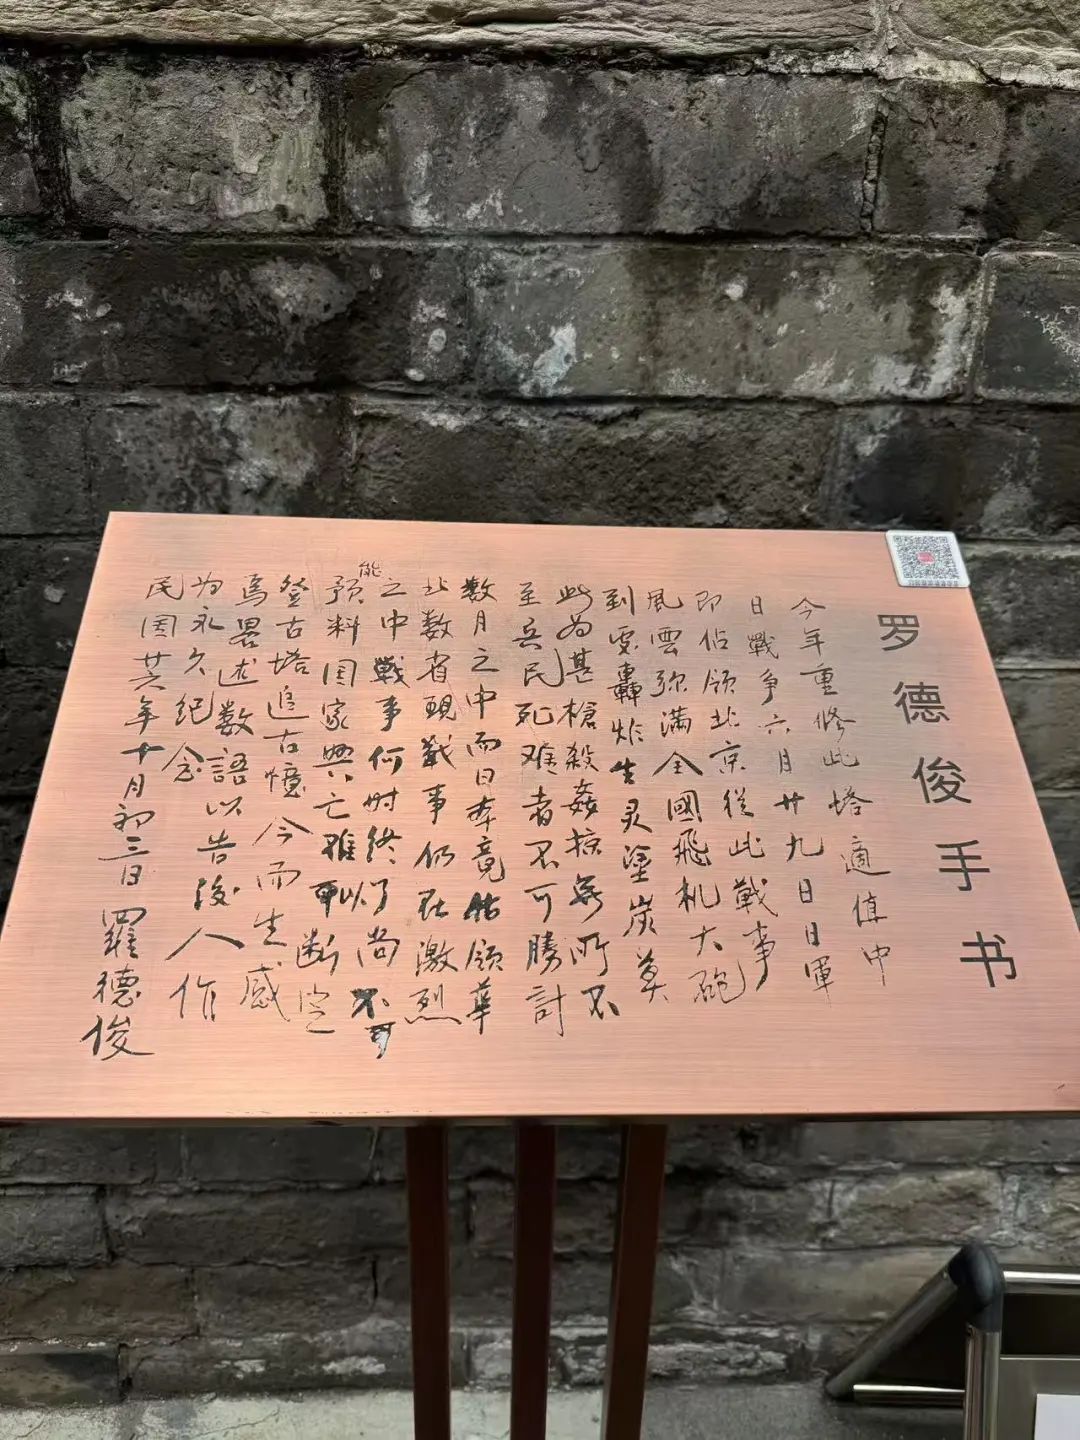 罗德俊手书
今年重修此塔適值中
日戰争六月廿九日日軍
即佔領北京從此戰事
風雲弥满全國飛机大砲
到处轟炸生灵塗炭莫
此为甚槍殺姦掠無所不
至兵民死难者不可勝計
数月之中而日本竟佔領華
北数省現戰事仍在激烈
之中戰事何时终了尚不
能预料国家興亡难以断定
登古塔追古憶今而生感
焉畧述数語以告後人作
为永久纪念
民国廿六年十月初三日羅德俊